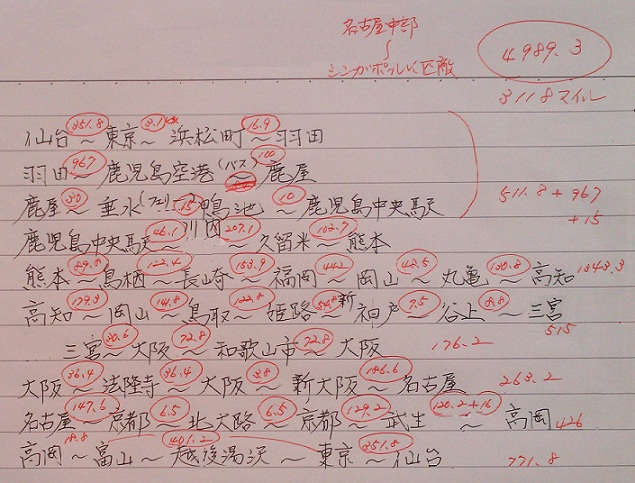 名古屋中部
〜
シンガポールに匹敵
4989.3
3118マイル
仙台 351.8 〜 東京 3.1 〜 浜松町 16.9 〜 羽田
羽田 967 〜 鹿児島空港 (バス) 〜 100 鹿屋
鹿屋 30 〜 垂水 (フェリー) 15 鴨池 10 〜 鹿児島中央駅
511.8 + 967
+15
鹿児島中央駅 46.1 〜 川内 207.1 〜 久留米 103.7 〜 熊本
熊本 〜 鳥栖 122.4 〜 長崎 153.9 〜 福岡 442 〜 岡山 42.5 〜 丸亀 〜 高知 1343.3
高知 179.3 〜 岡山 〜 鳥取 〜 姫路 54.8 〜 新神戸 7.5 〜 谷上 〜 三宮
515
三宮 30.6 〜 大阪 72.8 〜 和歌山市 72.8 〜 大阪 176.2
大阪 36.4 〜 法隆寺 36.4 〜 大阪 3.8 〜 新大阪 186.6 〜 名古屋 263.2
名古屋 147.6 〜 京都 6.5 〜 北大路 6.5 〜 京都 129.2 〜 武生 120.2+16 〜 高岡 426
高岡 18.8 〜 富山 〜 401.2 越後湯沢 〜 東京 351.8 〜 仙台 771.8